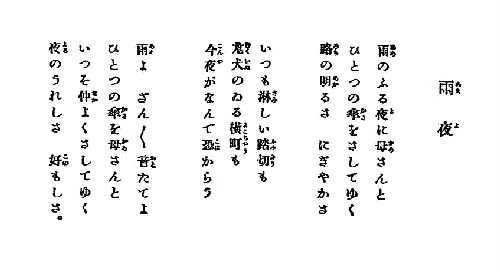 雨夜
雨のふる夜に母さんと
ひとつの傘をさしてゆく
路の明るさ にぎやかさ
いつも淋しい踏切も
恐犬のゐる横町も
今夜がなんで恐からう
雨よ ざん〱 音たてよ
ひとつの傘を母さんと
いつそ仲よくさしてゆく
夜のうれしさ 好もしさ。